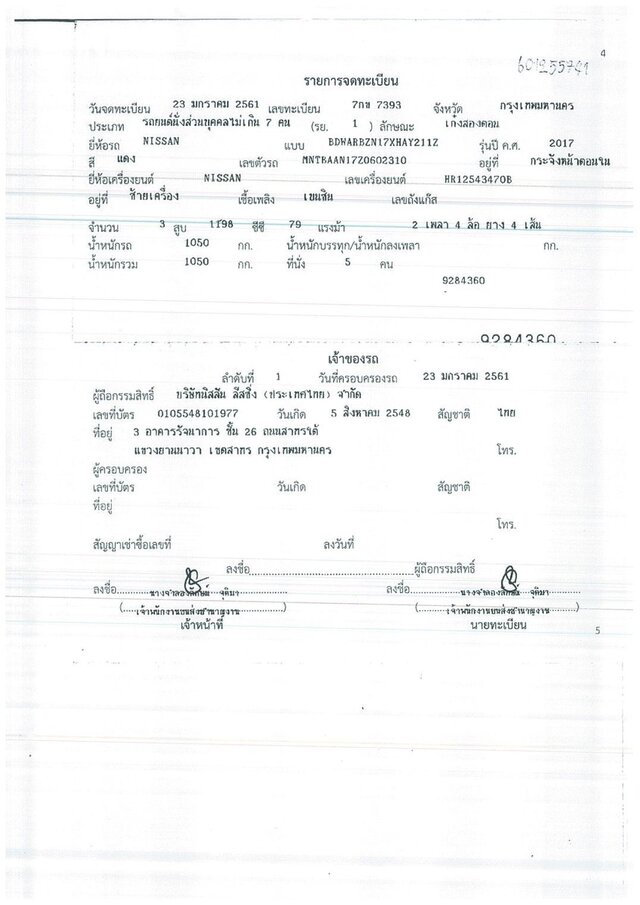 4
601255741
รายการจดทะเบียน
วันจดทะเบียน 23 มกราคม 2561 เลขทะเบียน 7กข 7393 จังหวัด กรุงเทพมหานคร
ประเภท รถยนต์นั่งส่วนบุคคลไม่เกิน 7 คน (รย. 1 ) ลักษณะ เก๋งสองตอน
ยี่ห้อรถ NISSAN แบบ BDWARBZN17XHAY211Z รุ่นปี ค.ศ. 2017
สี แดง เลขตัวรถ MNTBAAN17Z0602310 อยู่ที่ กระจังหน้าตอนใน
ยี่ห้อเครื่องยนต์ NISSAN เลขเครื่องยนต์ HR12543470B
อยู่ที่ ซ้ายเครื่อง เชื้อเพลิง เบนซิน เลขถังแก๊ส
จำนวน 3 สูบ 1198 ซีซี 79 แรงม้า 2 เพลา 4 ล้อ ยาง 4 เส้น
น้ำหนักรถ 1050 กก. น้ำหนักบรรทุก/น้ำหนักลงเพลา กก.
น้ำหนักรวม 1050 กก. ที่นั่ง 5 คน
9284360
9284360
เจ้าของรถ
ลำดับที่ 1 วันที่ครอบครองรถ 23 มกราคม 2561
ผู้ถือกรรมสิทธิ์ บริษัทนิสสัน ลีสซิ่ง (ประเทศไทย) จำกัด
เลขที่บัตร 0105548101977 วันเกิด 5 สิงหาคม 2548 สัญชาติ ไทย
ที่อยู่ 3 อาคารรัจนาการ ชั้น 26 ถนนสาทรใต้
แขวงยานนาวา เขตสาทร กรุงเทพมหานคร โทร.
ผู้ครอบครอง
เลขที่บัตร วันเกิด สัญชาติ
ที่อยู่
โทร.
สัญญาเช่าซื้อเลขที่ ลงวันที่
ลงชื่อ ผู้ถือกรรมสิทธิ์
ลงชื่อ นางจำลองลักษณ์ จุติมา ลงชื่อ นางจำลองลักษณ์ จุติมา
(เจ้าพนักงานขนส่งชำนาญงาน) (เจ้าพนักงานขนส่งชำนาญงาน)
เจ้าหน้าที่ นายทะเบียน
5